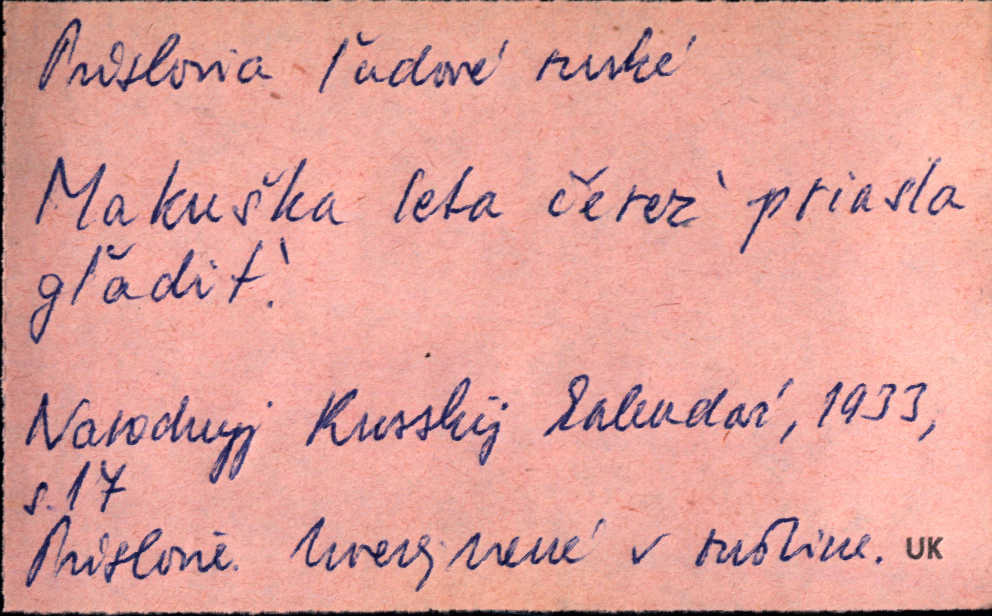 Príslovia ľudové ruské
Makuška leta čerez priasla
gľadiť.
Narodnyj Russkij Kalendar, 1933,
s. 17
Príslovie. Uverejnené v ruštine. UK